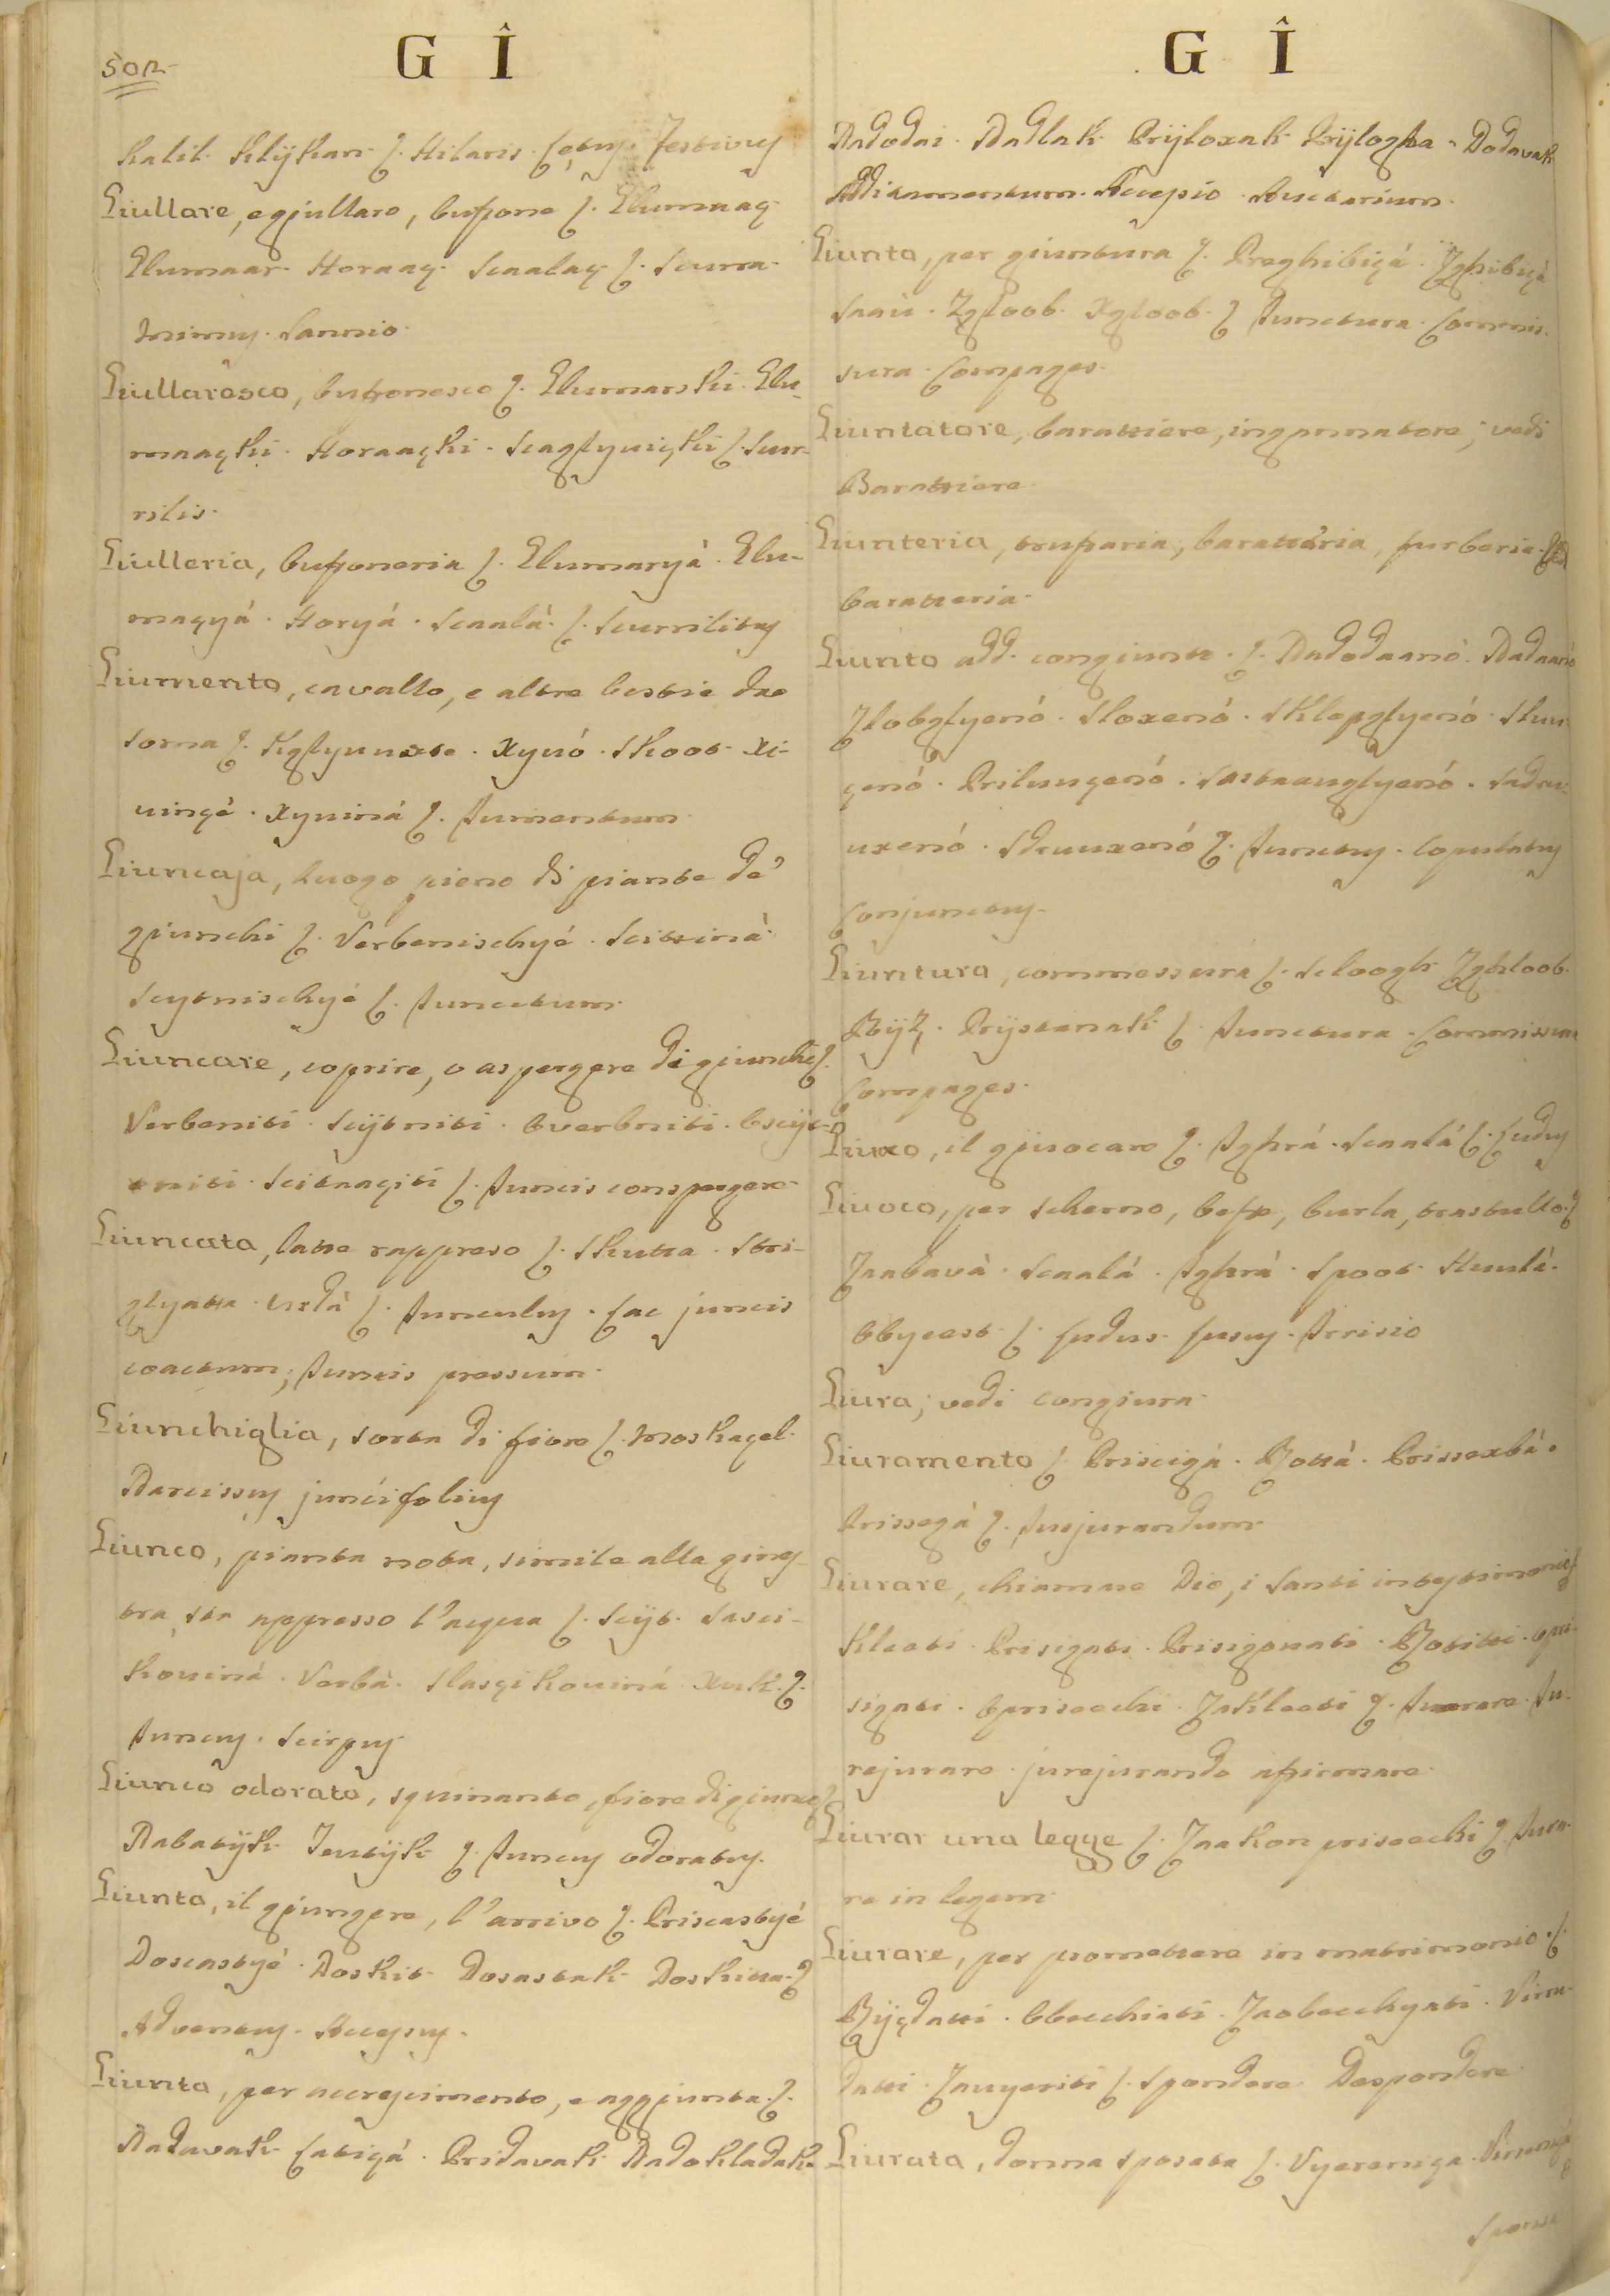 502.
G Î
Kalil. Klÿkan ſ. Hilaris. Lętus. Festivus
Giullare, e gjullaro, buffone ſ. Glumaaç.
Glumaar. Horaaç. Scaalaç ſ. Scurra.
Mimus. Sannio.
Giullaresco, buffonesco ſ. Glumarski. Glu-
maaçki. Horaaçki. ſ. Scur-
rilis.
Giulleria, buffoneria ſ. Glumaryà. Glu-
maçyá. Horyá. Scaalà. ſ. Scurrilitas
Giumento, cavallo, e altre bestie da
soma ſ. Xyvó. Skoot. Xi-
vinçé. Xyviná ſ. Jumentum.
Giuncaja, luogo pieno di piante de'
giunchi ſ. Verbenischyé. Scitinà.
Scytnischyé ſ. Juncetum.
Giuncare, coprire, o aspergere di giunchi ſ.
Verbeniti. Scÿtniti. Overbniti. Oscÿt-
niti. Scitnaçiti ſ. Juncis conspergere.
Giuncata, latte rappreso ſ. Skutta. Stri-
glyatta. ſ. Junculus. Lac juncis
coactum; Juncis pressum.
Giunchiglia, sorta di fiore ſ. Moskaçel.
Narcissus juncifolius
Giunco, pianta nota, simile alla gines-
tra, sta appresso l'acqua ſ. Scÿt. Sasci-
kovinà. Verbà. Slasçikoviná. Xuk. ſ.
Juncus. Scirpus.
Giunco odorato, squinanto, fiore di giunco ſ.
Nabatÿk ſ. Juncus odoratus.
Giunto, il giungere, l'arrivo ſ. Priscastyé
Doscastyé. Doskit. Dosastak. Doskitta. ſ
Adventus. Accessus.
Giunta, per accrescimento, e aggiunta. ſ.
Nadavak. Pridavak. Nadokladak.
G Î
Nadodai. Nadlak. Prÿloxak. Prÿlogha. Dodavak
Additamentum. Accessio. Auctarium.
Giunta, per giuntura ſ. Preghibiçá. Zghibiçà
Zgloob. Xgloob. ſ Junctura. Commis-
sura. Compages.
Giuntatore, barattiere, ingannatore; vedi
Barattiere.
Giunteria, truffaria, barattaria, furberia.
baratteria.
Giunto add. congiunto. ſ. Nadodaanó. Nadaanó
Zlobglyenó. Sloxenó. Sklopglyenó.
çenó. Prilunçenó. Sastaavglyenó. Sadru-
uxenó. Sdruuxenó ſ. Junctus. Copulatus
Conjunctus.
Giuntura, commessura ſ. Scloogh. Zghloob.
Prÿstanak ſ. Junctura. Commissura
Compages.
Giuoco, il giuocare ſ. Jghrá. Scaalá ſ. Ludus
Giuoco, per scherno, beffe, burla, trastullo. ſ
Zaabavà. Scaalá. Jghrá. Spoot. Huulà.
ſ. Ludus. Lusus. Irrisio
Giura; vedi congiura.
Giuramento ſ. Priscigá. Rottà.
Prissegá ſ. Jusjurandum.
Giurare, chiamare Dio, i Santi in testimonio ſ.
Kleeti. Prisigati. Prisigovati. Rotitti.
sigati. Zakleeti ſ. Jurare. Ju-
rejurare. jurejurando affirmare.
Giurar una legge ſ. Zaakon priseechi ſ. Jura-
re in legem.
Giurare, per promettere in matrimonio. ſ.
Obecchiati. Zaobecchyati. Viren-
datti. ſ. Spondere. Despondere.
Giurata, donna sposata ſ. Vyereniça.
Sponsa